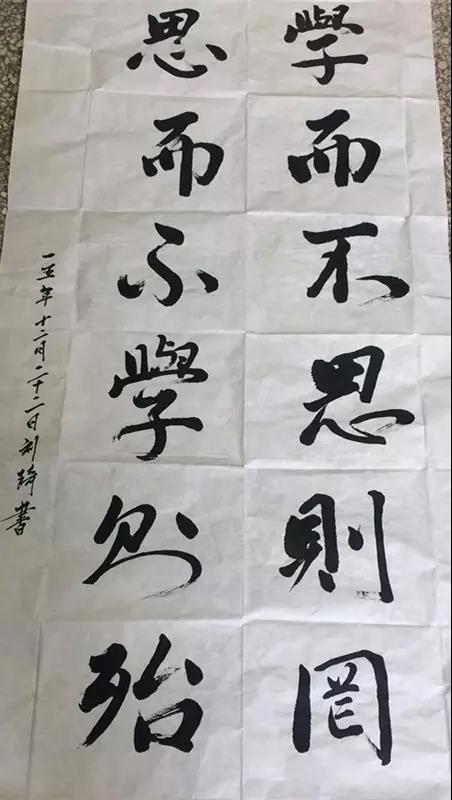 學而不思則罔
思而不學則殆
一五年十二月二十二日刘
書